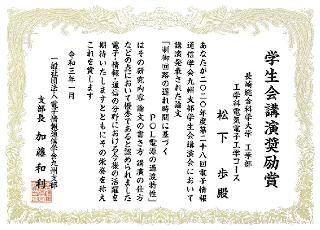 学生会講演奨励賞
長崎総合科学大学 工学部
工学科電気電子工学コース
松下 歩 殿
あなたが二〇二〇年度第二十八回電子情報
通信学会九州支部学生会講演会において
講演発表された論文
『制御回路の遅れ時間に基づく
POL電源の過渡特性』
はその研究内容 論文の書き方 講演の仕方
などの点において優秀であると認められました
電子・情報・通信の分野における今後の活躍を
期待いたしますとともにその栄誉を称え
これを賞します
令和三年一月
一般社団法人電子情報通信学会九州支部
支部長 加藤和利